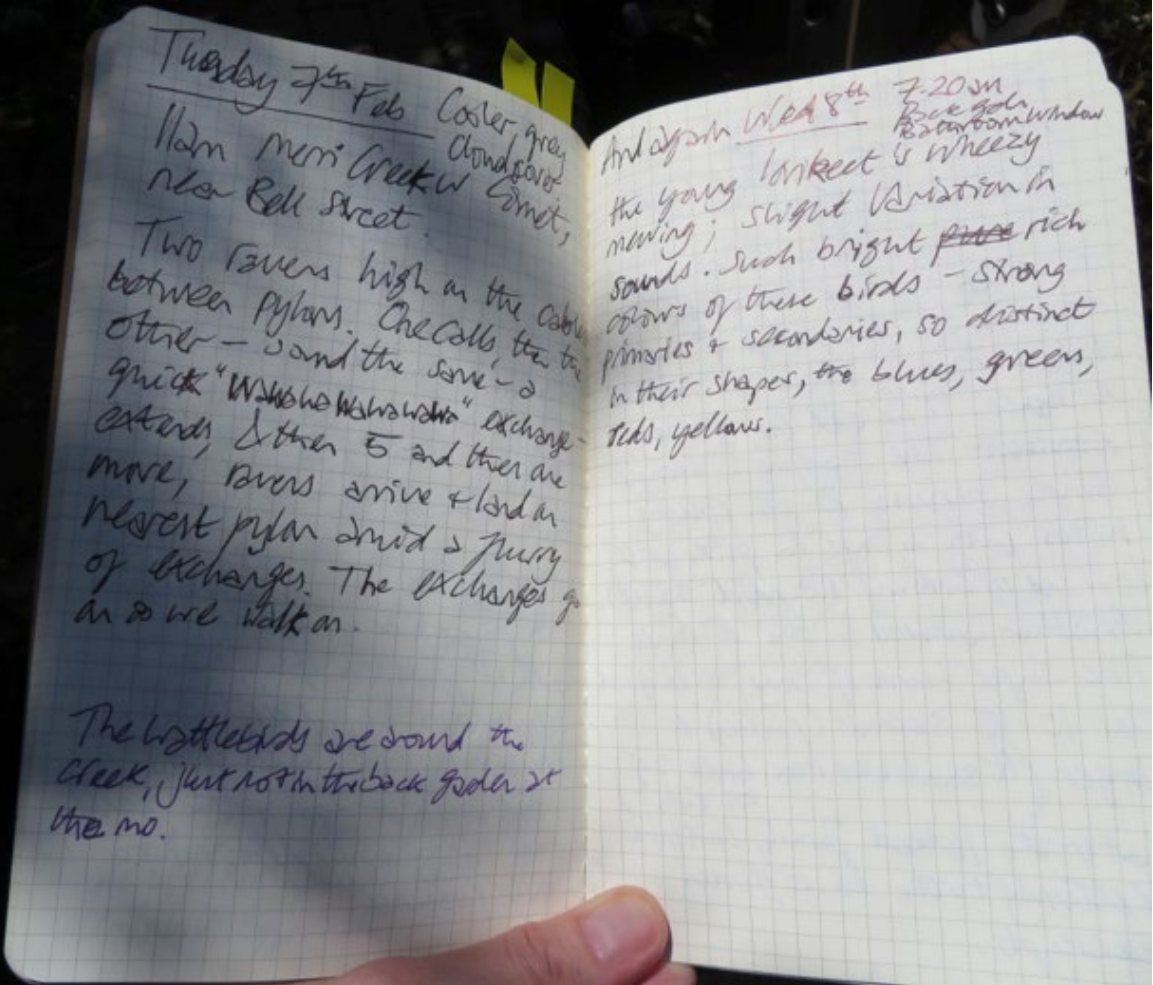 Tuesday 7th Feb Cooler, grey
cloud cover
11am Merri Creek w Comet,
near Bell Street.
Two ravens high on the cables
between pylons. One calls, then the
other – sound the same – a
quick "wawawawawawawa" exchange –
extends, & then 5 and then one
more, ravens arrive + land on
nearest pylon amid a flurry
of exchanges. The exchanges go
on as we walk on.
The wattlebirds are around the
creek, just not in the back garden at
the mo.
And again Wed 8th 7.20am
Back gdn
Bathroom window
the young lorikeet's wheezy
mewing; slight variation in
sounds. Such bright rich
colours of these birds – strong
primaries + secondaries, so distinct
in their shapes, the blues, greens,
reds, yellows.